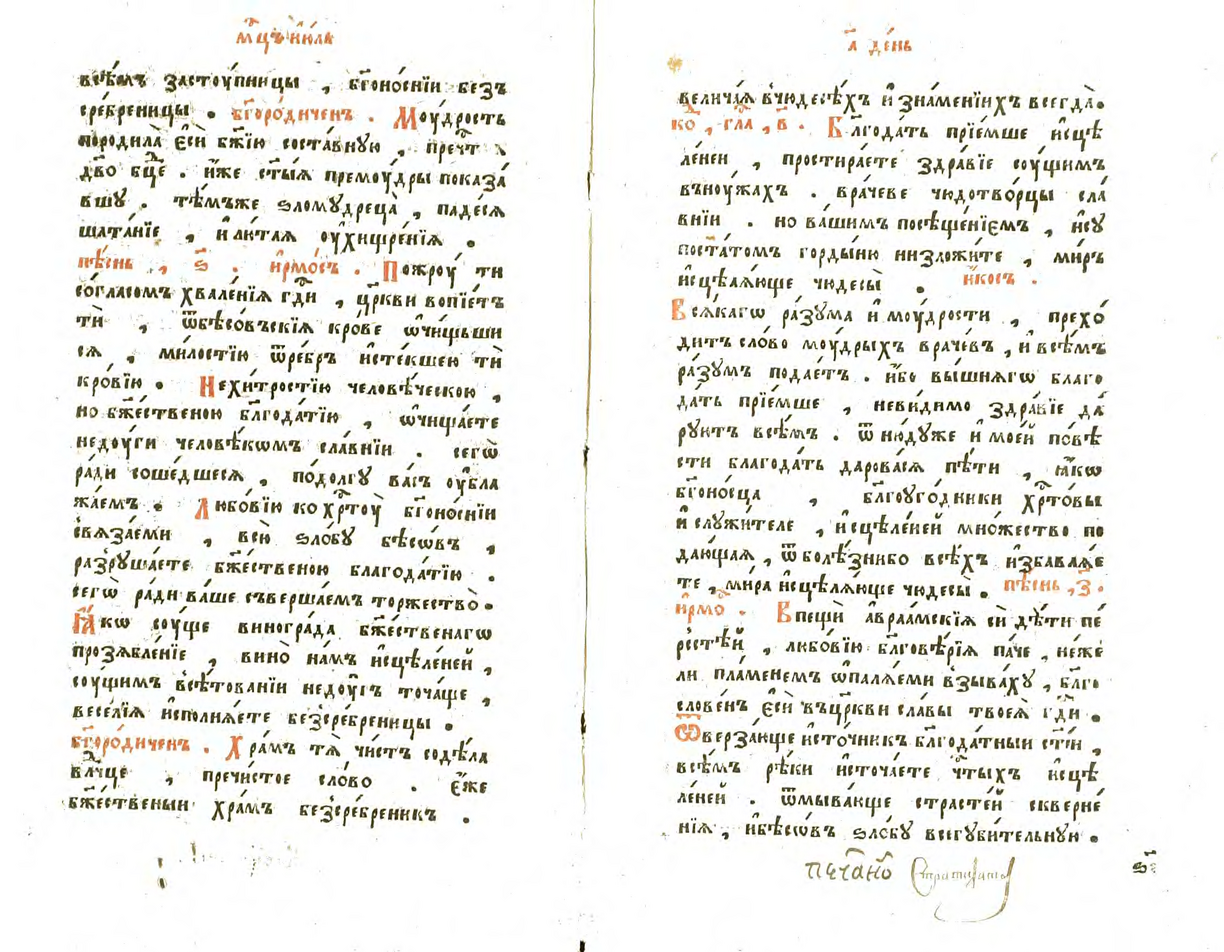 мⷭ҇цъ їюлѧ
всѣмъ застоупницы , бг҃оно́снїи безъ
сре́бреницы . бг҃оро́диченъ . Моу́дрость
породила̀ є҆сѝ бж҃їю соста́вную , преч҃т
дв҃о бц҃е . и҆́же ст҃ы́ѧ премоу́дры показа́
вшу . тѣ́мъже ѕломудреца̀ , паде́сѧ
шата́нїе , и҆ лю́таѧ оу҆хищре́нїѧ .
пѣ́снь , ѕ҃ . и҆рмо́съ . Пожроу́ ти
со́гласомъ хвале́нїѧ гд҃и , цр҃кви вопїе́тъ
тѝ , ѿбѣсо́въскїѧ кро́ве ѡ҆чи́щьши
сѧ , ми́лостїю ѿре́бръ и҆сте́кшею тѝ
кро́вїю . Нехи́тростїю человѣ́ческою ,
но бж҃е́ственою бл҃года́тїю , ѡ҆чища́ете
недоу́ги человѣ́кѡмъ сла́внїи . сегѡ̀
ра́ди соше́дшесѧ , по́долгу ва́съ оу҆бла
жа́емъ . Любо́вїю ко хрⷭ҇тоу̀ бг҃оно́снїи
свѧза́еми , всю̀ ѕло́бу бѣсѡ́въ ,
разруша́ете бж҃е́ственою благода́тїю .
сегѡ̀ ра́ди ва́ше съверша́емъ торжество̀ .
Ꙗ҆́кѡ соу́ще виногра́да бж҃е́ственагѡ
прозѧбле́нїе , вино̀ на́мъ и҆сцѣле́ней ,
соу́щимъ всѣ́тованїи недоу́гъ точа́ще ,
весе́лїѧ и҆сполнѧ́ете безъсре́бреницы .
бг҃оро́диченъ . Хра́мъ тѧ̀ чи́стъ содѣ́ла
влⷣчце , пречи́стое сло́во . є҆́же
бж҃е́ственыи хра́мъ безъсре́бреникъ .
а҃ де́нь
велича́ѧ вчюдесѣ́хъ и҆ зна́менїихъ всегда̀ .
ко́ , гла́ , в҃ . Бл҃года́ть прїе́мше и҆сцѣ
ле́неи , простира́ете здра́вїе соу́щимъ
въноу́жахъ . вра́чеве чюдотво́рцы сла́
внїи . но ва́шимъ посѣще́нїємъ , и҆су
поста́томъ горды́ню низложи́те , ми́ръ
и҆сцѣлѧ́юще чюдесы̀ . и҆́косъ .
Всѧ́кагѡ ра́зума и҆ моу́дрости , прехо́
дитъ сло́во моу́дрыхъ враче́въ , и҆ всѣ́мъ
ра́зумъ подае́тъ . и҆́бо вы́шнѧгѡ благо
да́ть прїе́мше , неви́димо здра́вїе да́
руютъ всѣ́мъ . ѿ ню́дуже и҆ мое́й по́вѣ
сти благода́ть дарова́сѧ пѣ́ти , ꙗ҆́кѡ
бг҃оно́сца , бл҃гоуго́дники хрⷭ҇то́вы
и҆ служи́теле , и҆сцѣле́ней мно́жество по
даю́щаѧ , ѿ болѣ́знибо всѣ́хъ и҆збавлѧ́е
те , ми́ра и҆сцѣлѧ́юще чюдесы̀ . пѣ́снь , з҃ .
и҆рмо́ . Впещѝ а҆враа́мскїѧ сѝ дѣ́ти пе́
рстѣй , любо́вїю бл҃говѣ́рїѧ па́че , не́же
ли пла́менемъ ѡ҆палѧ́еми взыва́ху , бл҃го
слове́нъ є҆сѝ въцр҃кви сла́вы твоеѧ̀ гд҃и .
Ѿверза́юще и҆сто́чникъ бл҃года́тныи ст҃і́и ,
всѣ́мъ рѣ́ки и҆сточа́ете ч҃тыхъ и҆сцѣ
ле́ней . ѿмыва́юще страсте́й скверне́
нїѧ , и҆бѣсѡ́въ ѕло́бу всегуби́тельную .
печано
ѕ҃